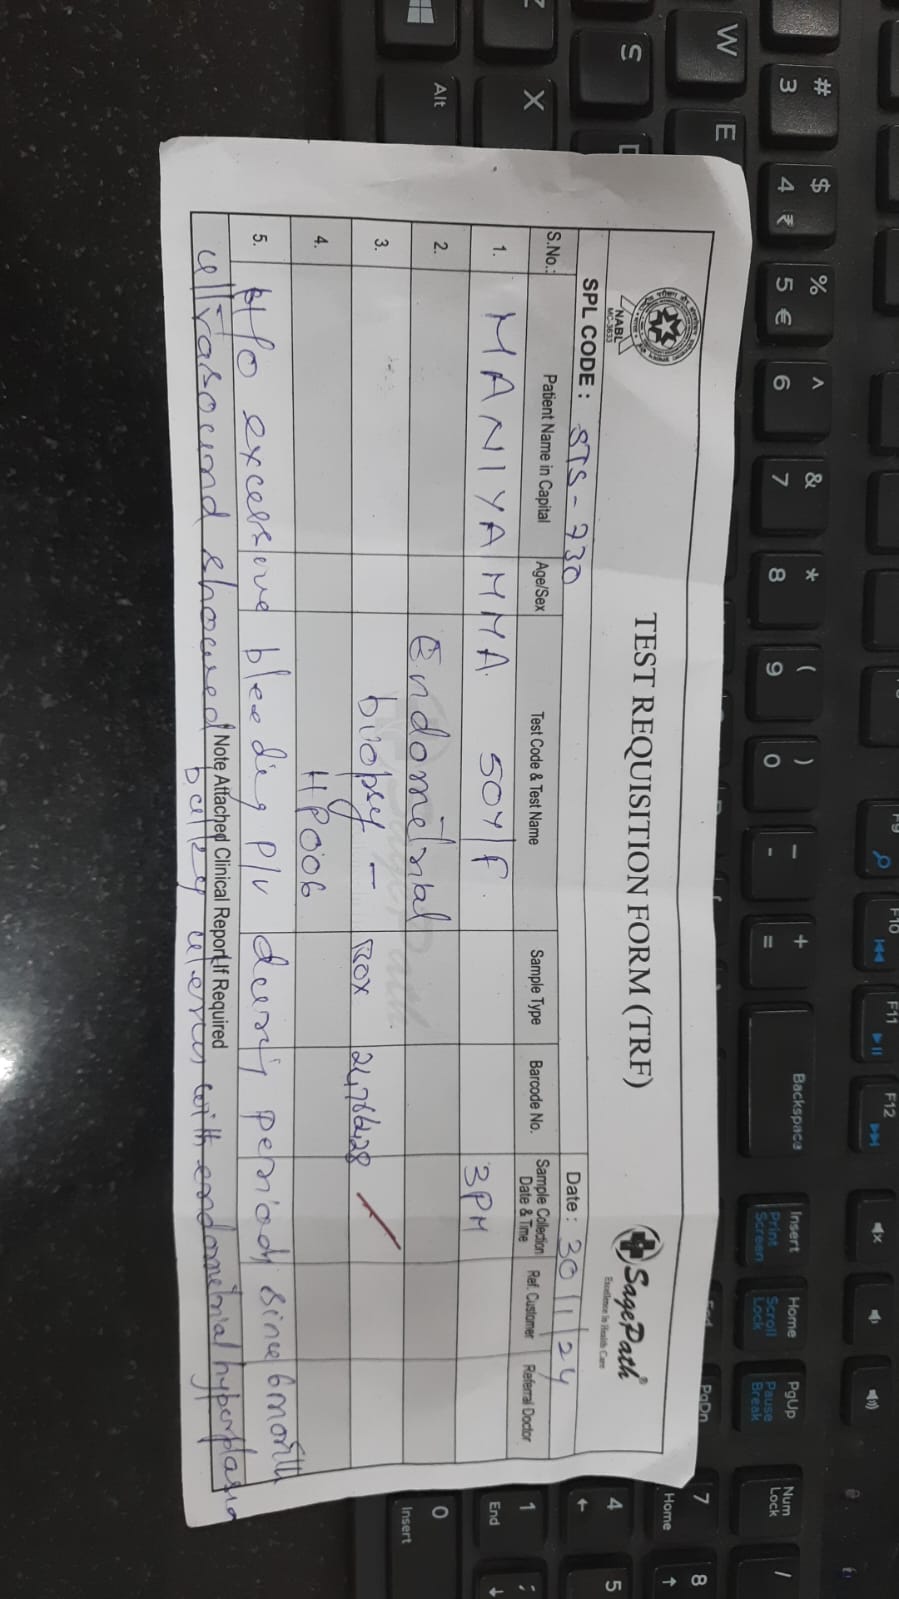 TEST REQUISITION FORM (TRF)
NABL
MC-3633
SagePath®
Excellence in Health Care
SPL CODE : STS - 730
Date : 30/1/24
S.No.: Patient Name in Capital Age/Sex Test Code & Test Name Sample Type Barcode No. Sample Collection Date & Time Ref. Customer Referral Doctor
1. MANIYAMMA 50Y/F. 3PM
2. Endometrial
3. biiopsy - BOX
4. HP006
5. H/O excessive bleeding P/V during periods since 6 month
Note Attached Clinical Report If Required
ultrasound showed bulky uterus with endometrial hyperplasia
W
E
S
Z
X
Alt
# 3
$ 4 ₹
% 5 €
^ 6
& 7
* 8
( 9
) 0
_ -
+ =
Backspace
F9
F10
F11
F12
Insert
Print Screen
Home
Scroll Lock
PgUp
Pause Break
PgDn
Num Lock
/
7 Home
8
4
5
1 End
0 Insert